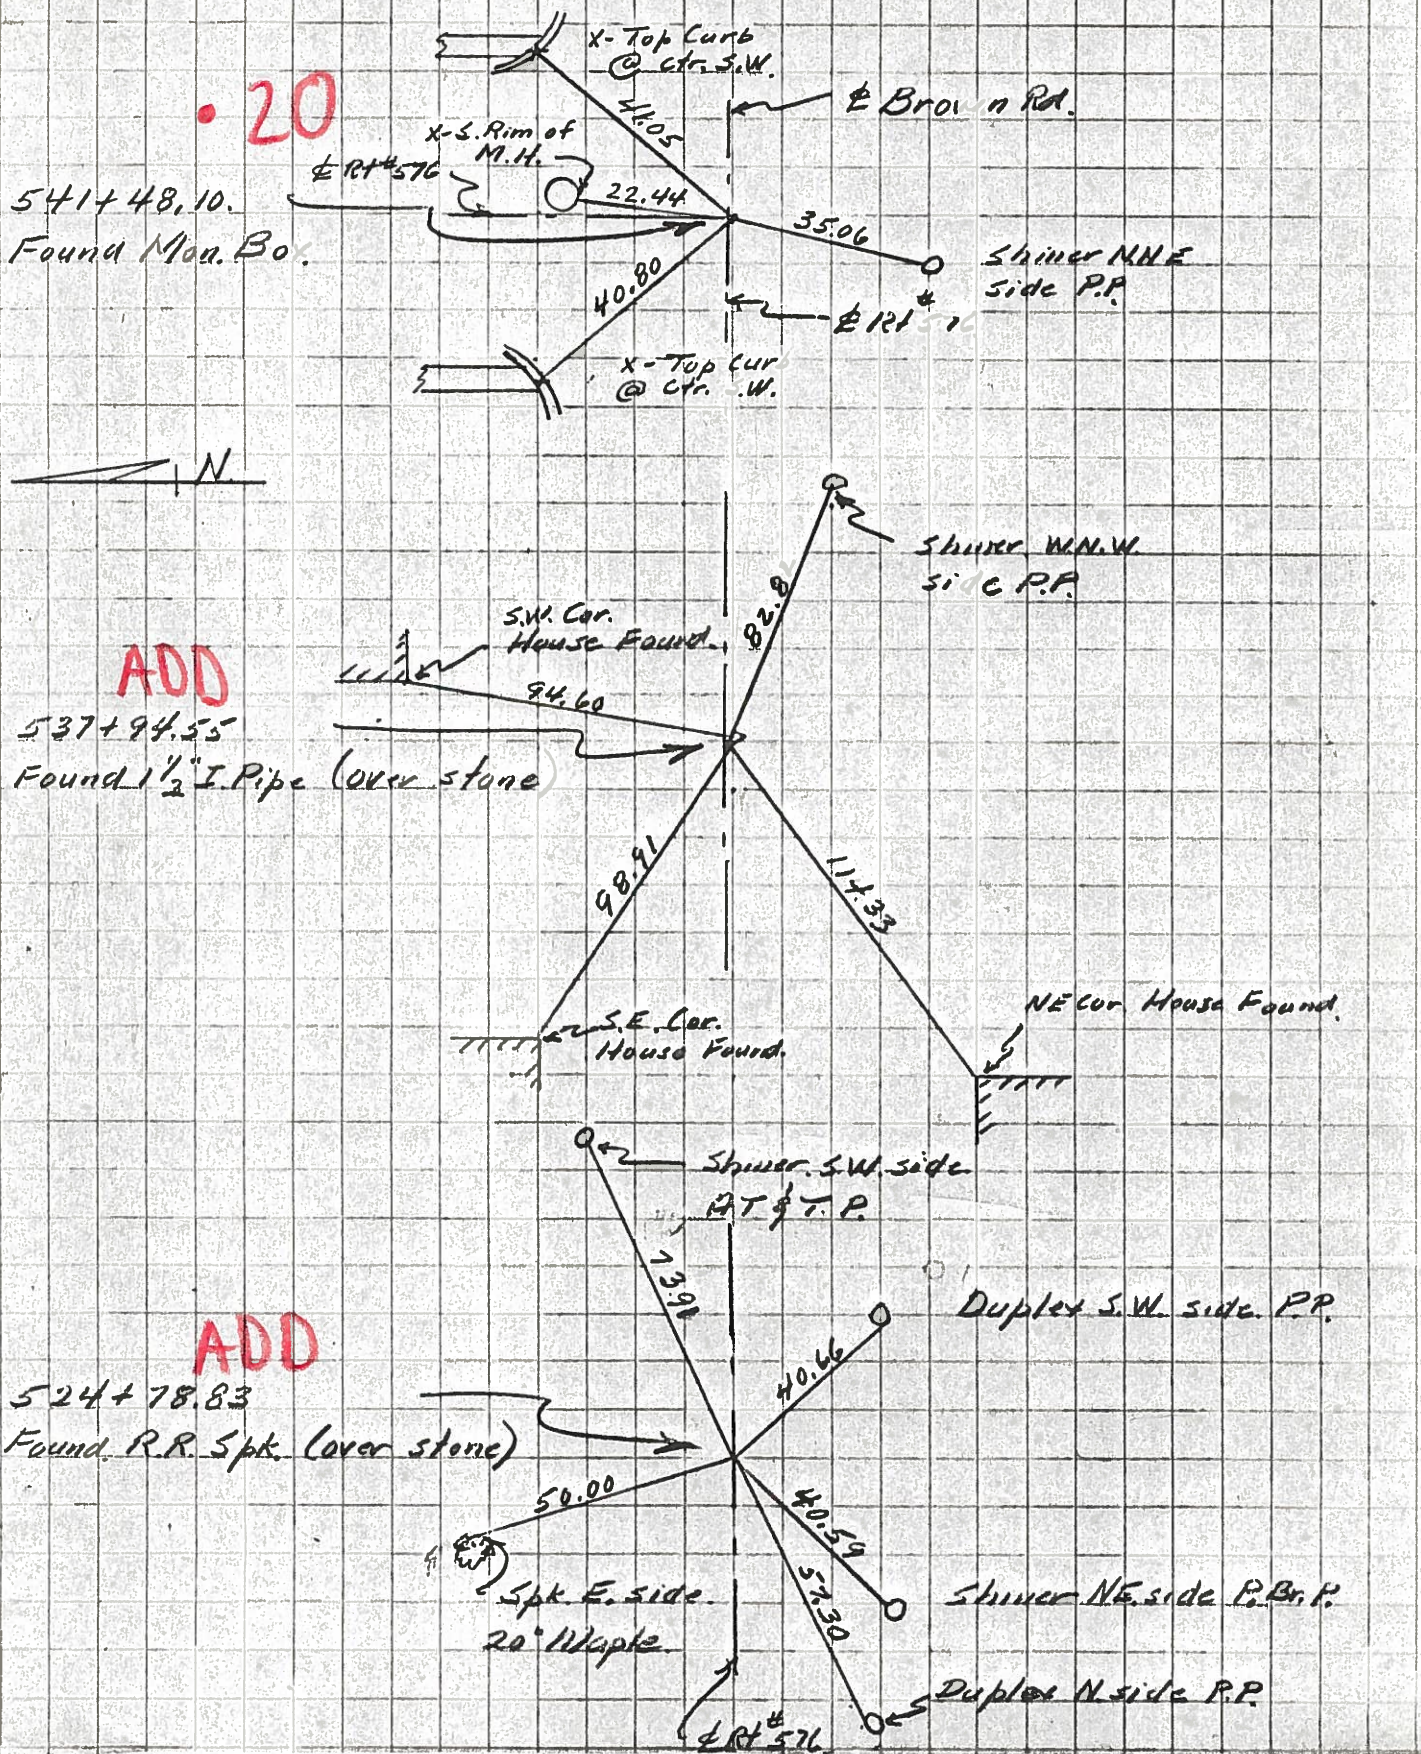 X-Top Curb
@ Ctr. S.W.
.20
℄ Brown Rd.
41.05
X-S.Rim of
M.H.
℄ Rt#576
22.44
541+48.10.
Found Mon. Box.
35.06
Shiner N.N.E
side P.P.
40.80
℄ Rt #
X-Top Cur
@ Ctr. .W.
N.
Shiner W.N.W.
side P.P.
82.8
S.W. Cor.
House Found.
ADD
94.60
537+94.55
Found 1 1/2" I.Pipe (over stone)
98.91
114.33
NE Cor. House Found.
S.E. Cor.
House Found.
Shiner S.W. side
AT&T. P.
73.98
Duplex S.W. side P.P.
ADD
40.66
524+78.83
Found R.R. Spk. (over stone)
50.00
40.59
57.30
Spk. E. side
20" Maple
Shiner NE. side P.Br.P.
Duplex N. side P.P.
℄ Rt #576